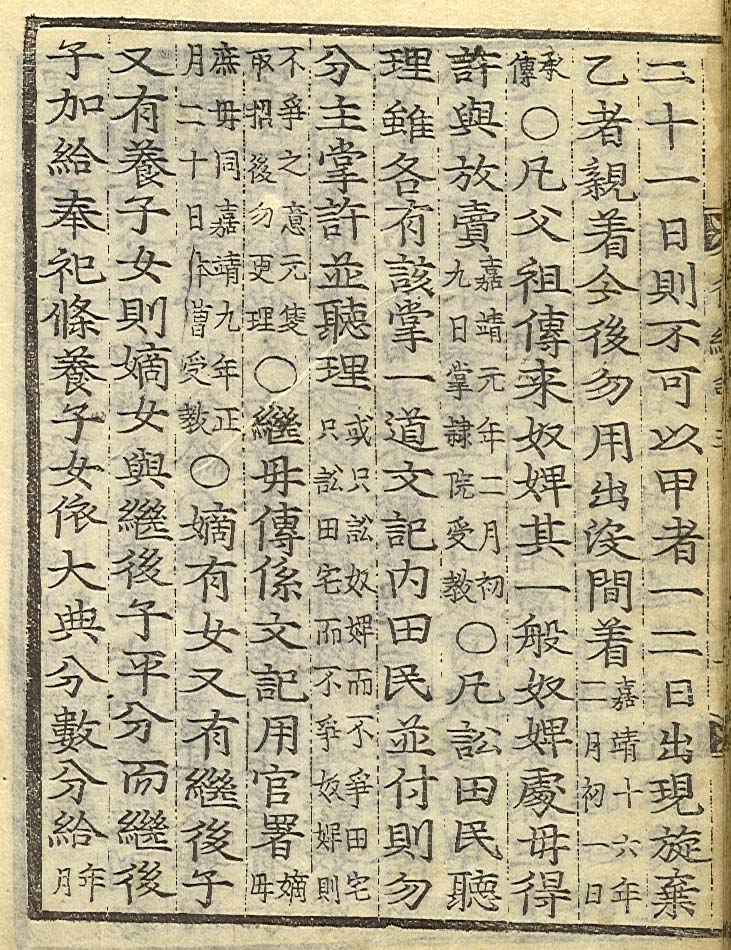 二十一日則不可以甲者一二日出現旋棄
乙者親着今後勿用出沒間着嘉靖十六年二月初一日
承傳○凡父祖傳来奴婢其一般奴婢處毋得
許與放賣嘉靖元年二月初九日掌隷院受教○凡訟田民聽
理雖各有該掌一道文記內田民並付則勿
分主掌許並聽理或只訟奴婢而不爭田宅只訟田宅而不爭奴婢則
不爭之意元隻取招後勿更理○繼母傳係文記用官署嫡母
庶母同嘉靖九年正月二十日本曹受教○嫡有女又有繼後子
又有養子女則嫡女與繼後子平分而繼後
子加給奉祀條養子女依大典分數分給年月